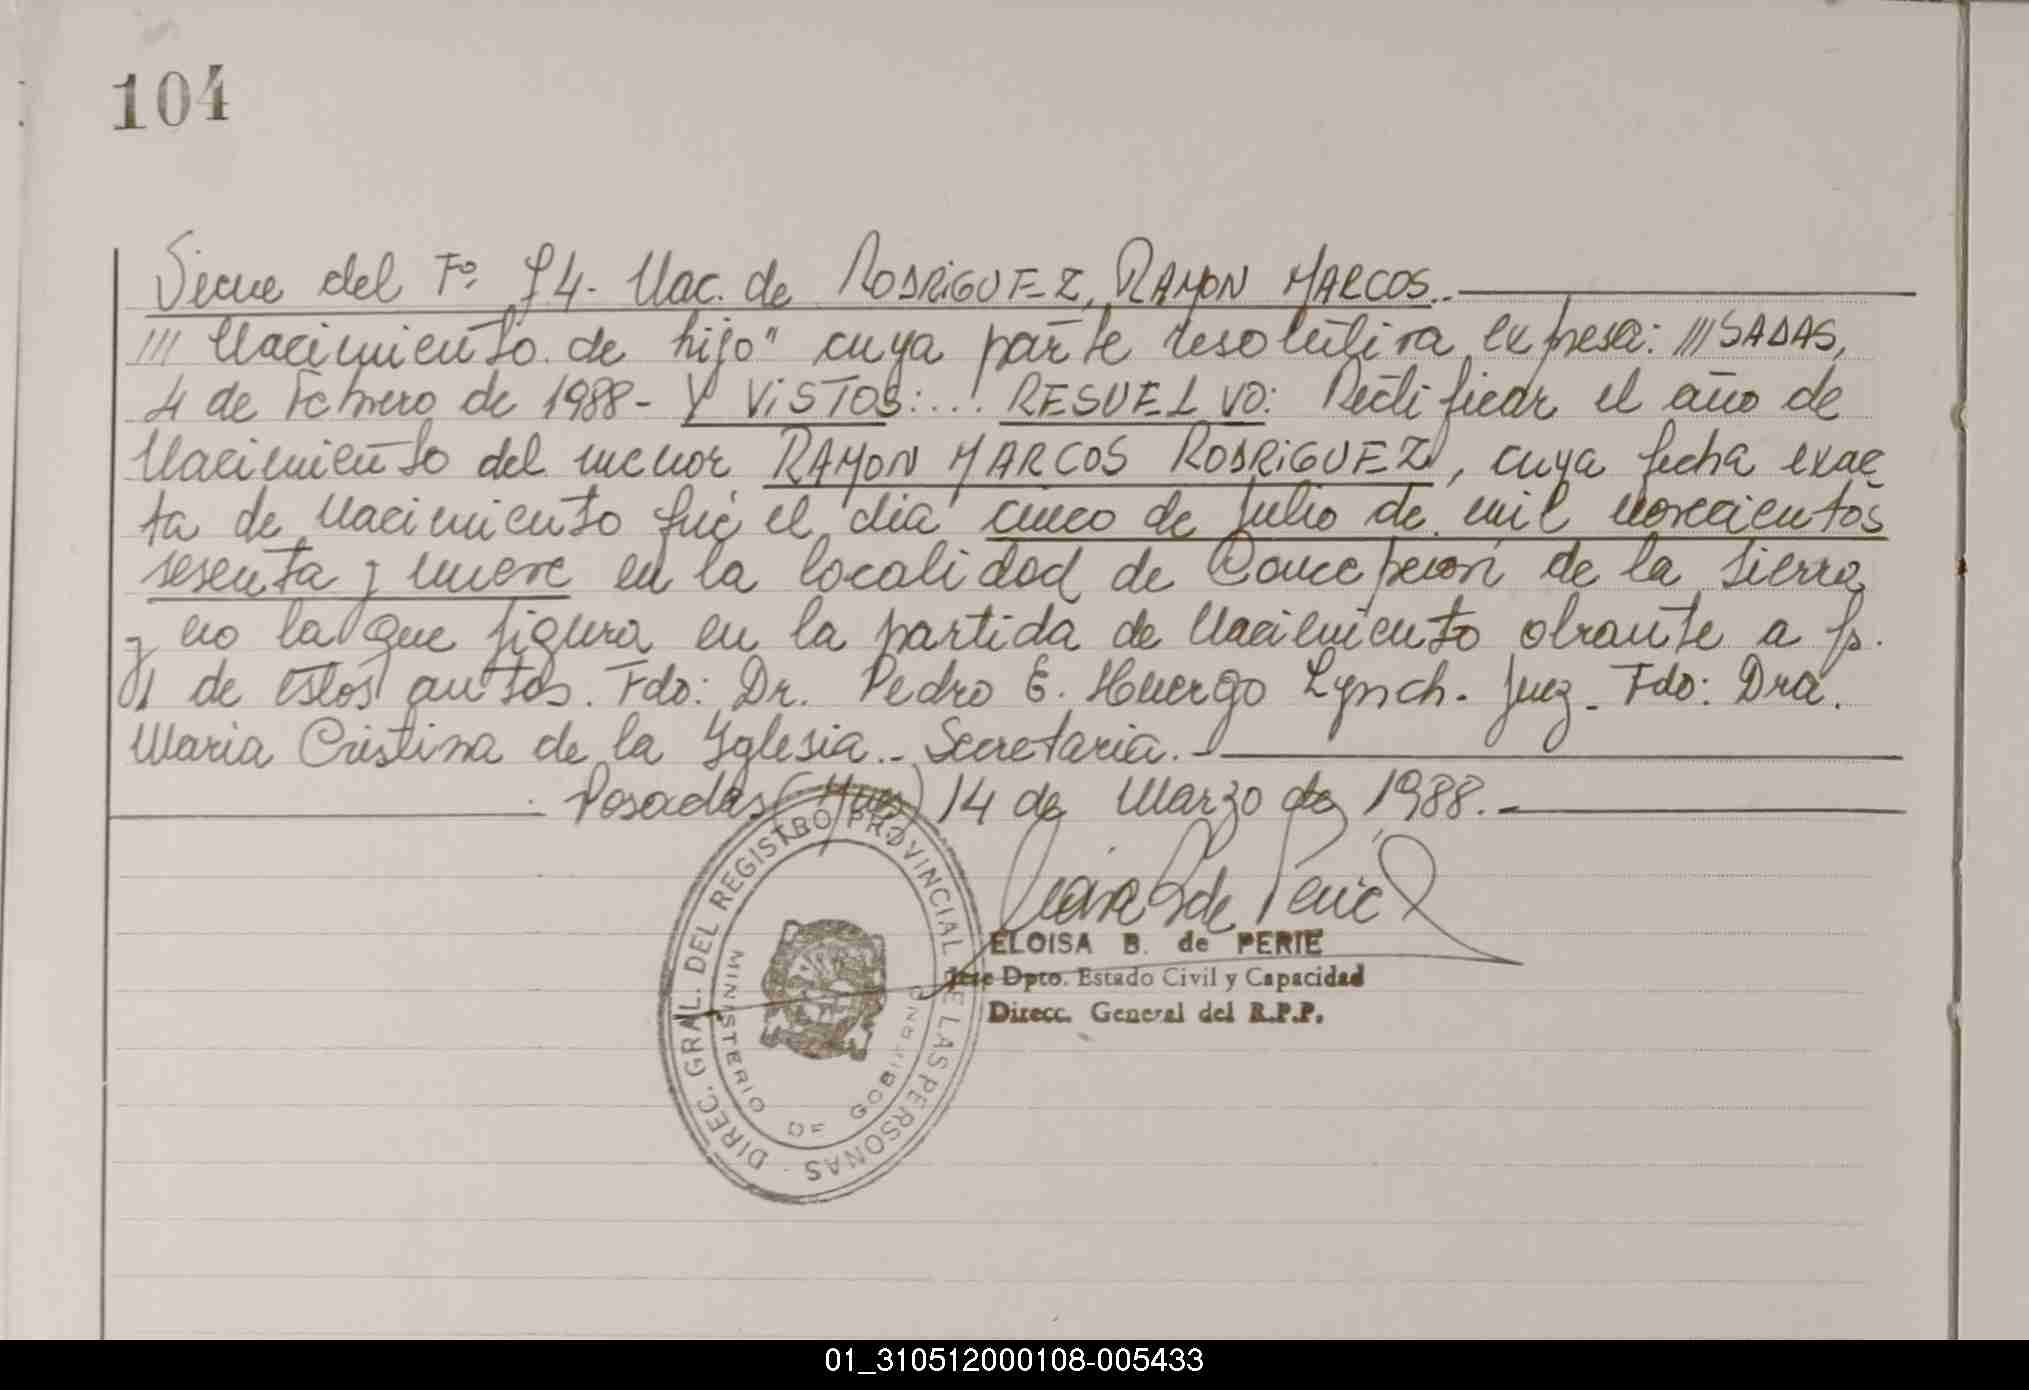 104
Sigue del Fº 94. Nac. de RODRIGUEZ, RAMON MARCOS..
/// Nacimiento de hijo" cuya parte resolutiva expresa: ///SADAS,
4 de Febrero de 1988 - Y VISTOS:... RESUELVO: Rectificar el año de
Nacimiento del menor RAMON MARCOS RODRIGUEZ, cuya fecha exac-
ta de Nacimiento fué el día cinco de Julio de mil novecientos
sesenta y nueve en la localidad de Concepción de la Sierra
y no la que figura en la partida de Nacimiento obrante a fs.
01 de estos autos. Fdo: Dr. Pedro E. Huergo Lynch. Juez - Fdo: Dra.
Maria Cristina de la Iglesia.- Secretaria.-
Posadas (Mnes) 14 de Marzo de 1988.-
DIREC. GRAL. DEL REGISTRO PROVINCIAL DE LAS PERSONAS
MINISTERIO DE GOBIERNO
ELOISA B. de PERIE
Jefe Dpto. Estado Civil y Capacidad
Direcc. General del R.P.P.
01_310512000108-005433